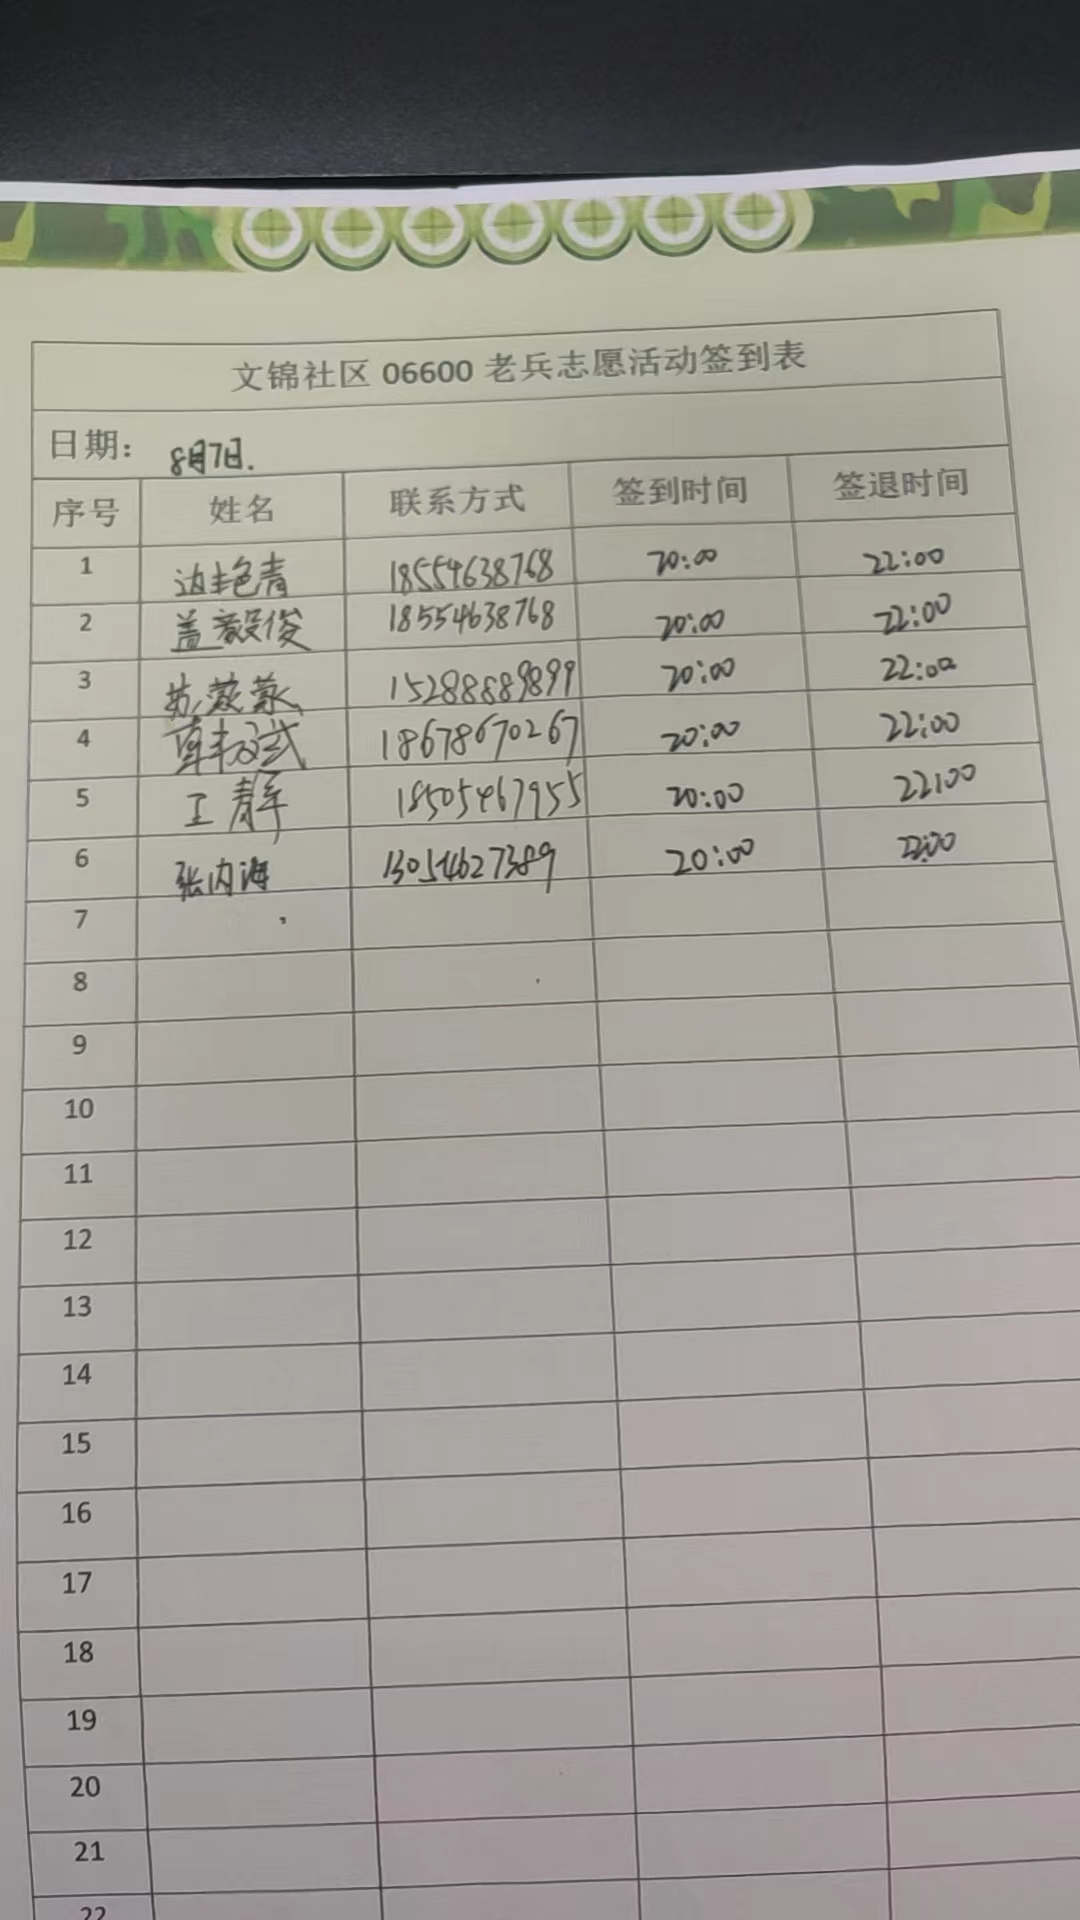 文锦社区 06600 老兵志愿活动签到表
日期： 8月7日.
序号 姓名 联系方式 签到时间 签退时间
1 边艳青 18554638768 20:00 22:00
2 盖毅俊 18554638768 20:00 22:00
3 苏蒙蒙 15288889899 20:00 22:00
4 18678670267 20:00 22:00
5 王静 18505467955 20:00 22:00
6 张内海 13054627389 20:00 22:00
7
8
9
10
11
12
13
14
15
16
17
18
19
20
21
22